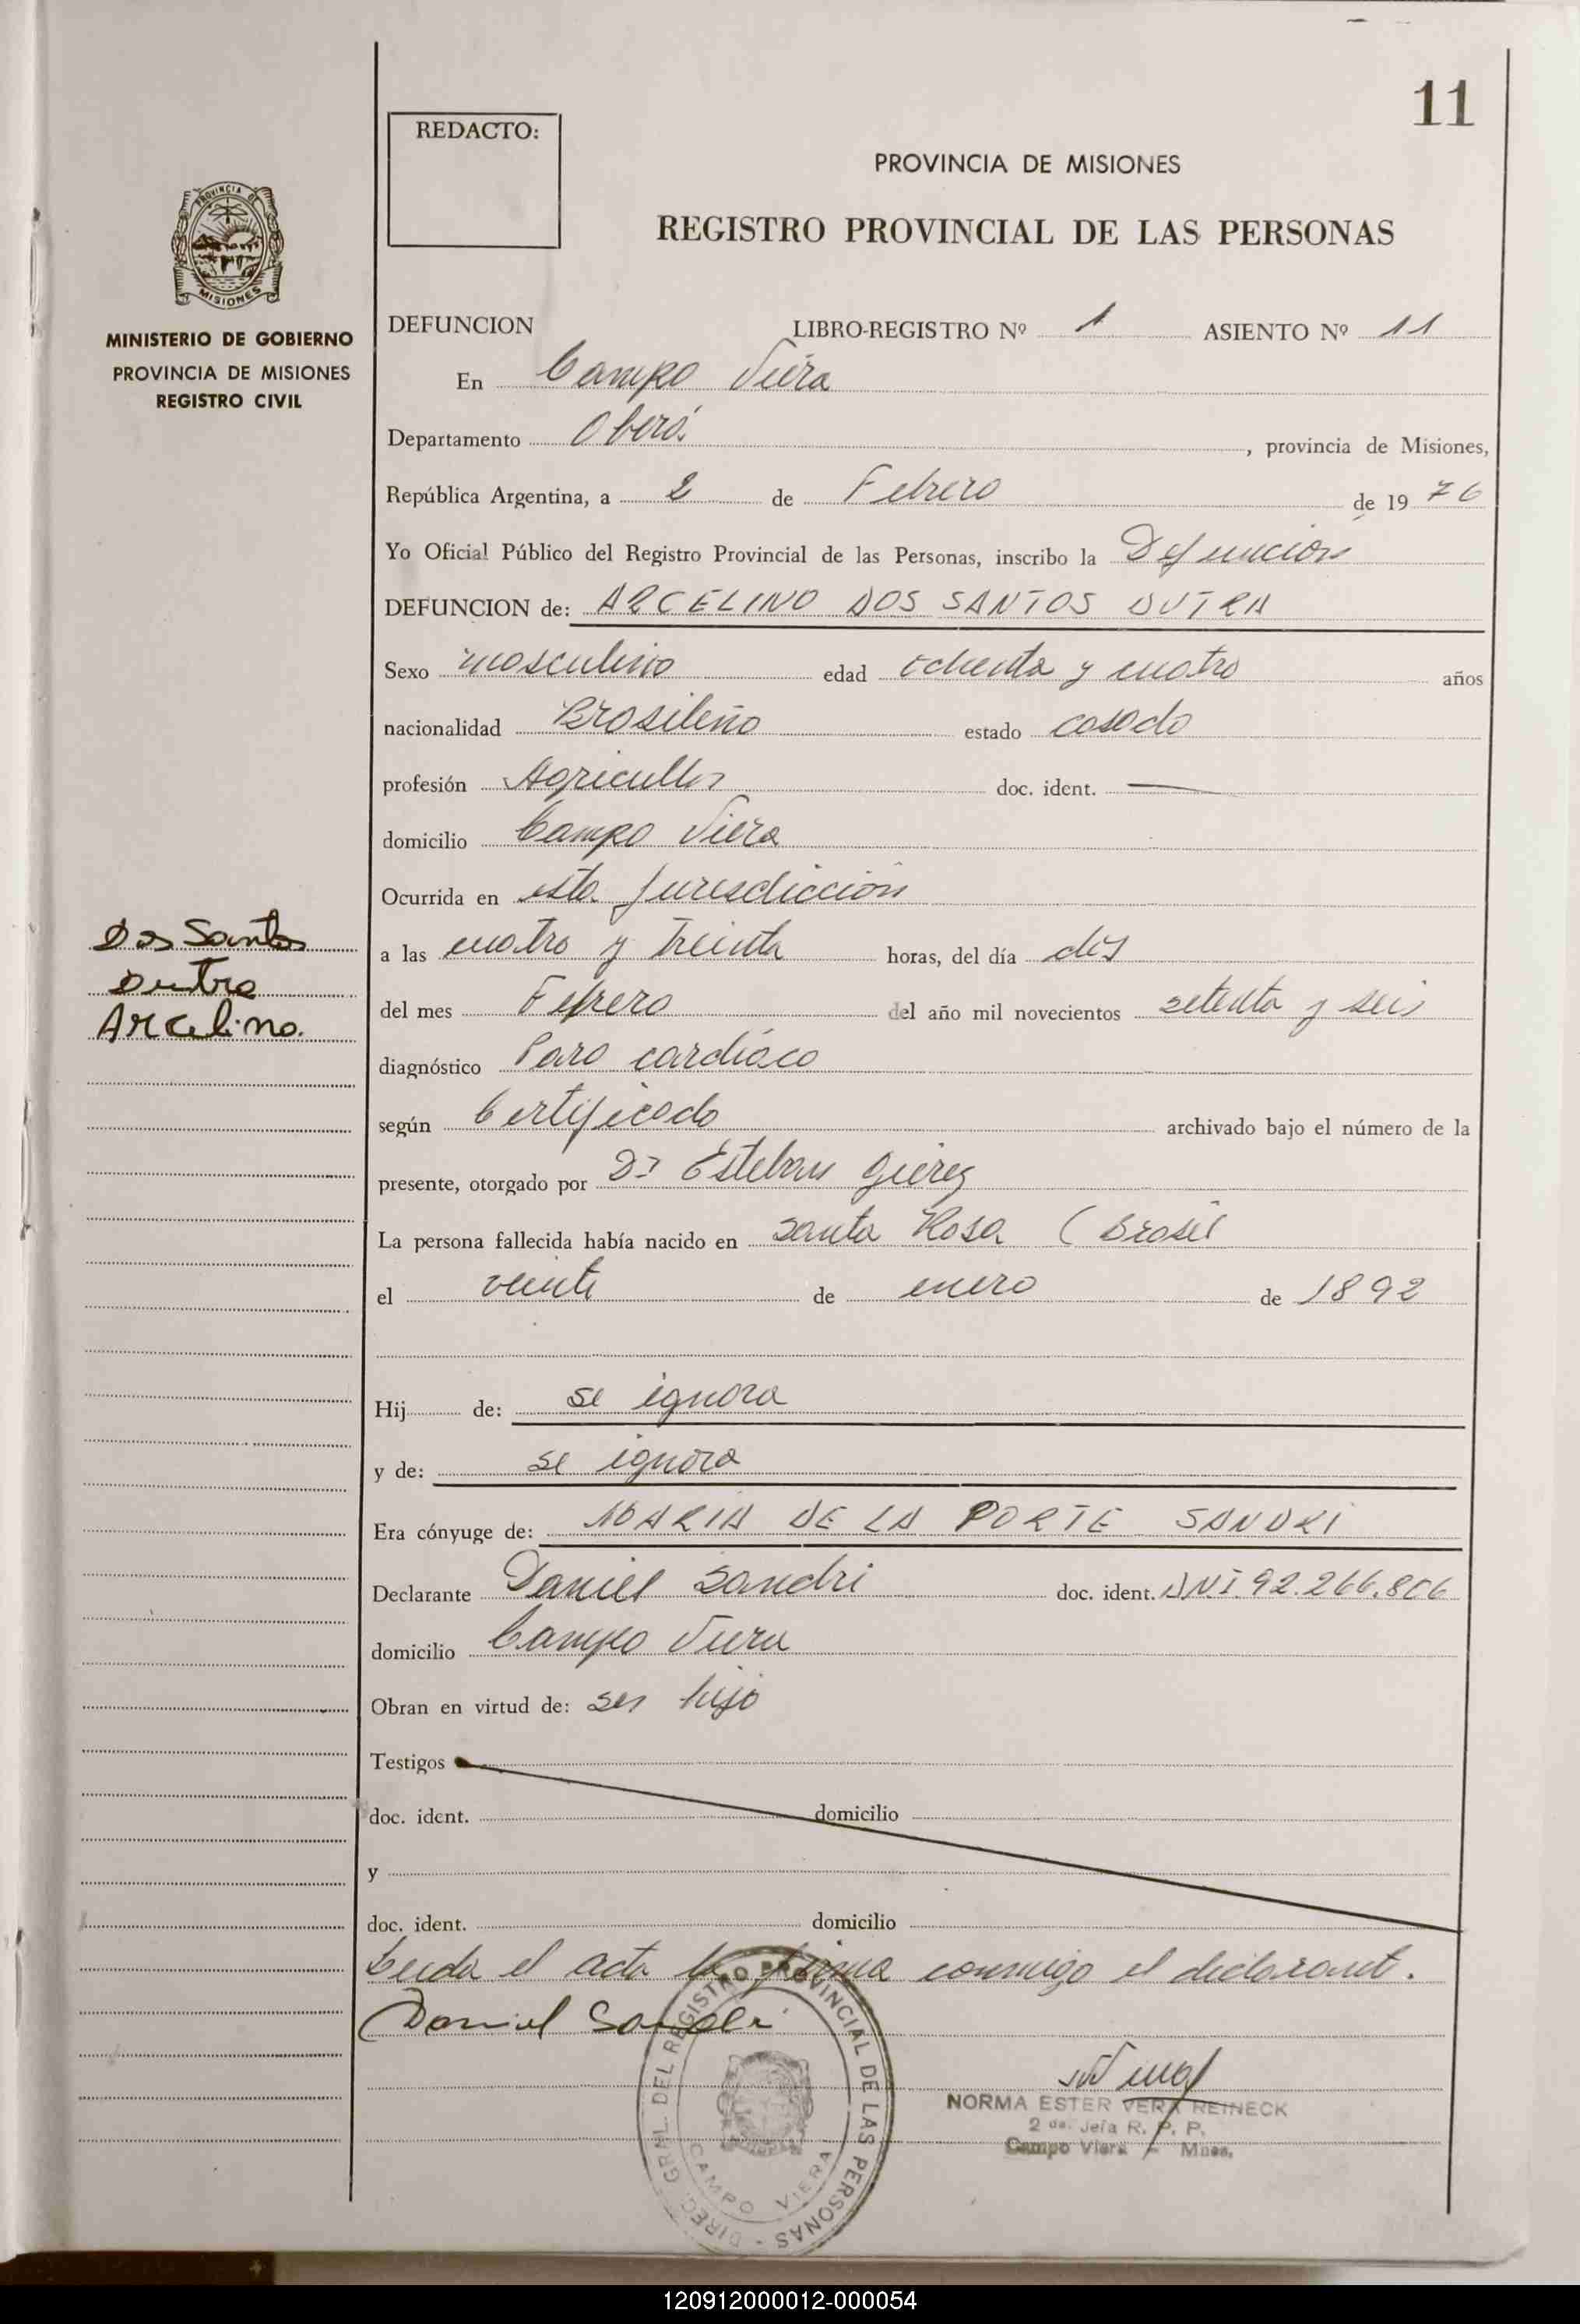 11
REDACTO:
PROVINCIA DE MISIONES
REGISTRO PROVINCIAL DE LAS PERSONAS
PROVINCIA DE
MISIONES
MINISTERIO DE GOBIERNO
PROVINCIA DE MISIONES
REGISTRO CIVIL
DEFUNCION LIBRO-REGISTRO Nº 1 ASIENTO Nº 11
En Campo Viera
Departamento Oberá , provincia de Misiones,
República Argentina, a 2 de Febrero de 19 76
Yo Oficial Público del Registro Provincial de las Personas, inscribo la Defuncion
DEFUNCION de: ARCELINO DOS SANTOS DUTRA
Sexo masculino edad ochenta y cuatro años
nacionalidad Brasileño estado casado
profesión Agricultor doc. ident. —
domicilio Campo Viera
Ocurrida en esta Jurisdiccion
Dos Santos
Dutra
Arcelino.
a las cuatro y treinta horas, del día dos
del mes Febrero del año mil novecientos setenta y seis
diagnóstico Paro cardíaco
según Certificado archivado bajo el número de la
presente, otorgado por Dr Esteban
La persona fallecida había nacido en Santa Rosa (Brasil
el veinte de enero de 1892
Hij de: se ignora
y de: se ignora
Era cónyuge de: MARIA DE LA PORTE SANDRI
Declarante Daniel Sandri doc. ident. DNI.92.266.806
domicilio Campo Viera
Obran en virtud de: ser hijo
Testigos
doc. ident. domicilio
y
doc. ident. domicilio
Leida el acta la firma conmigo el declarant.
Daniel Sandri
NORMA ESTER VERA REINECK
2 da. Jefa R. P. P.
Campo Viera - Mnes.
DIREC. GRAL. DEL REGISTRO PROVINCIAL DE LAS PERSONAS -
CAMPO VIERA
120912000012-000054